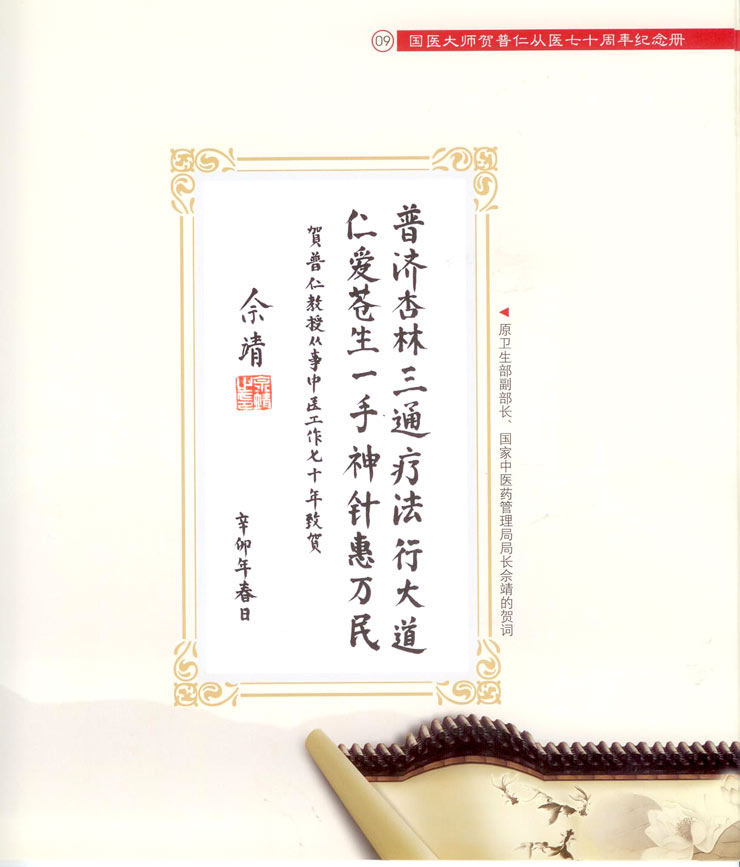 09 国医大师贺普仁从医七十周年纪念册
普济杏林三通疗法行大道
仁爱苍生一手神针惠万民
賀普仁教授从事中医工作七十年致賀
佘靖
辛卯年春日
原卫生部副部长、国家中医药管理局局长佘靖的贺词